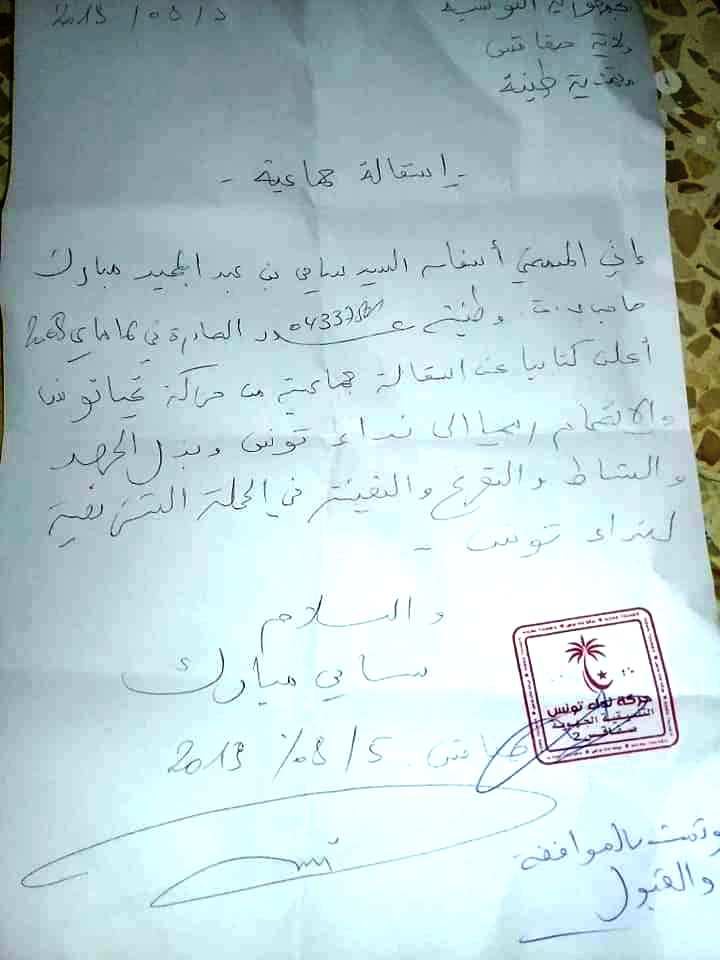 الجمهورية التونسية
5 / 09 / 2019
ولاية صفاقس
معتمدية طينة
- إستقالة جماعية -
إني الممضي أسفله السيد سامي بن عبد المجيد مبارك
صاحب ب.ت. وطنية عدد الصادرة في ماي
أعلن كتابيا عن استقالة جماعية من حركة تحيا تونس
والإنضمام رسميا الى نداء تونس وبذل الجهد
والنشاط والتفرغ في الحملة التشريعية
لنداء تونس -
والسلام
سامي مبارك
صفاقس 5 / 09 / 2019
حركة نداء تونس
التنسيقية الجهوية
صفاقس 2
وتمت بالموافقة
والقبول